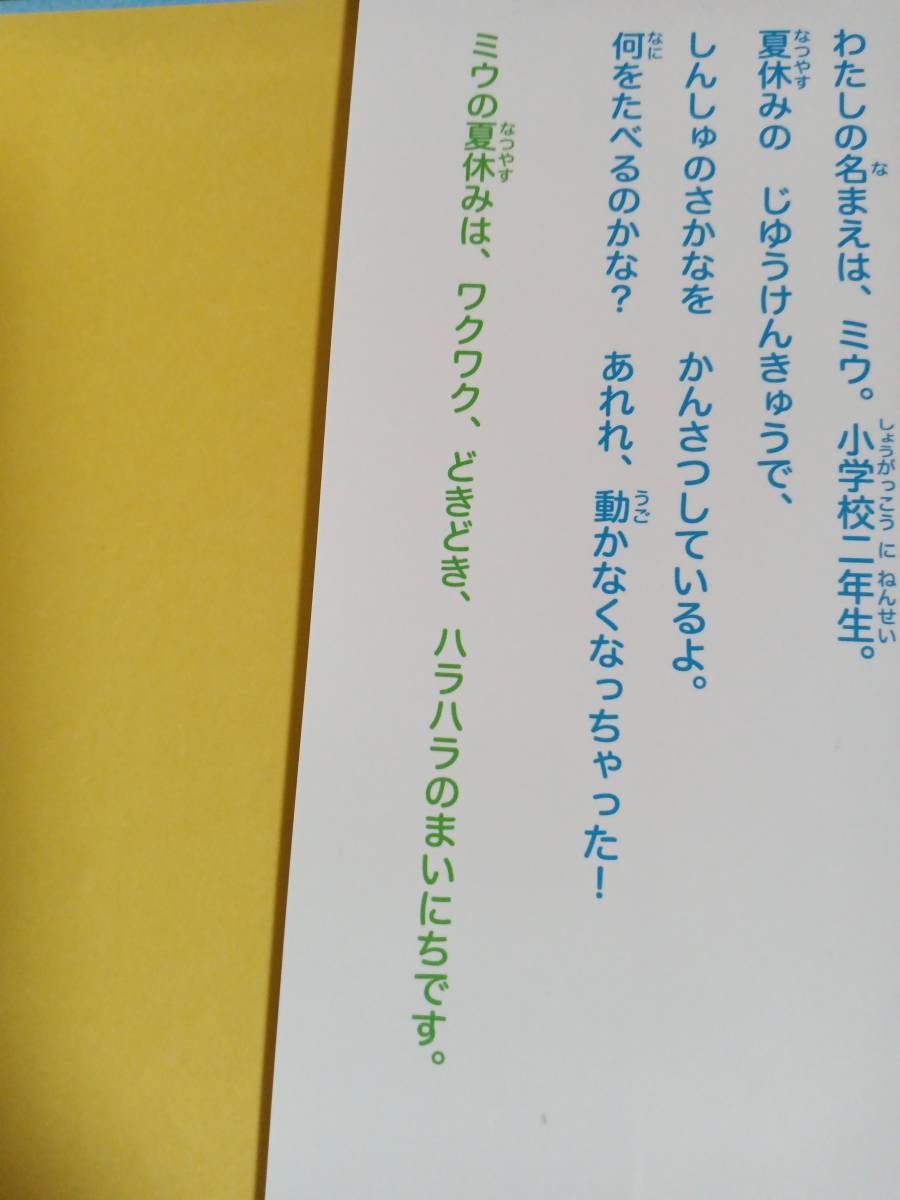 わたしの名まえは、ミウ。小学校二年生。
夏休みの　じゆうけんきゅうで、
しんしゅのさかなを　かんさつしているよ。
何をたべるのかな？　あれれ、動かなくなっちゃった！
ミウの夏休みは、ワクワク、どきどき、ハラハラのまいにちです。